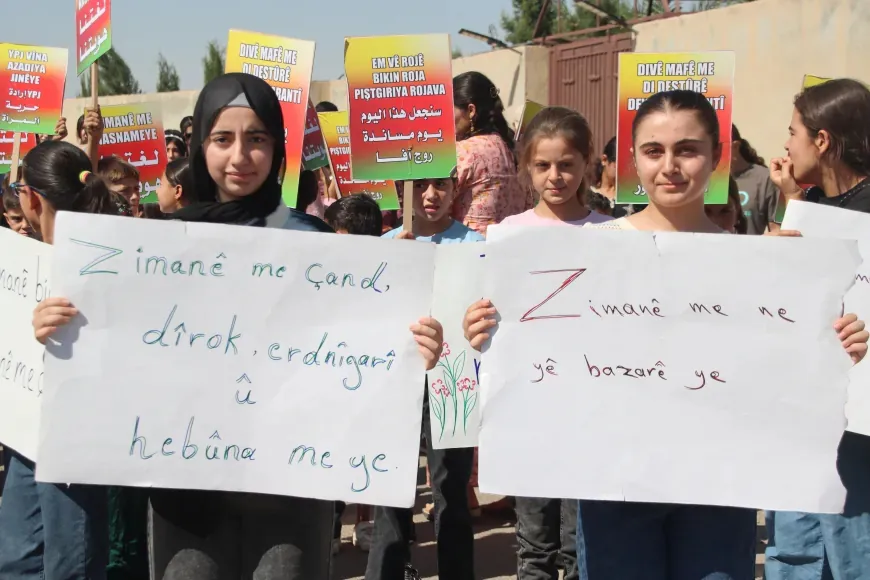 YPJ VÎNA
AZADIYA
JINÊYE
YPJ إرادة
حرية
المرأة
لغتنا
هويتنا
DIVÊ MAFÊ ME
DI DESTÛRÊ
EM VÊ ROJÊ
BIKIN ROJA
PIŞTGIRIYA ROJAVA
سنجعل هذا اليوم
يوم مساندة
روج آفا
DIVÊ MAFÊ ME
DI DESTÛRÊ
ZIMANÊ ME
NASNAMEYE
لغتنا
Zimanê me Çand,
dîrok, erdnîgarî
û
hebûna me ye.
Zimanê me ne
yê bazarê ye